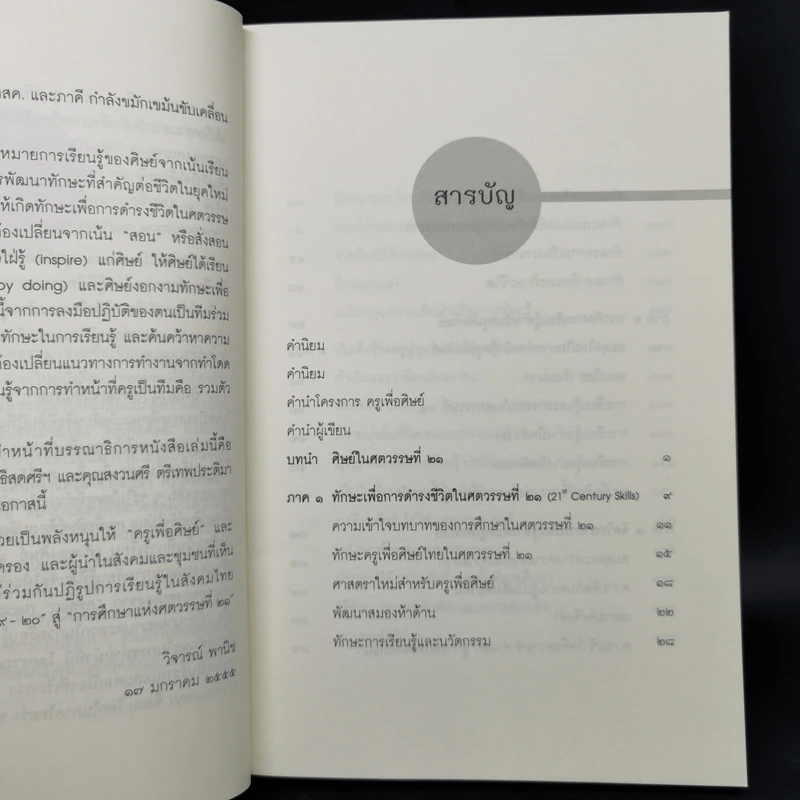 สค. และภาคี กำลังขมักเขม้นขับเคลื่อน
หมายการเรียนรู้ของศิษย์จากเน้นเรียน
รพัฒนาทักษะที่สำคัญต่อชีวิตในยุคใหม่
ให้เกิดทักษะเพื่อการดำรงชีวิตในศตวรรษ
ต้องเปลี่ยนจากเน้น “สอน” หรือสั่งสอน
ใฝ่รู้ (inspire) แก่ศิษย์ ให้ศิษย์ได้เรียน
by doing) และศิษย์งอกงามทักษะเพื่อ
นี้จากการลงมือปฏิบัติของตนเป็นทีมร่วม
ทักษะในการเรียนรู้ และค้นคว้าหาความ
ต้องเปลี่ยนแนวทางการทำงานจากทำโดด
นรู้จากการทำหน้าที่ครูเป็นทีมคือ รวมตัว
ทำหน้าที่บรรณาธิการหนังสือเล่มนี้คือ
ธิสดศรีฯ และคุณสงวนศรี ตรีเทพประติมา
อกาสนี้
วยเป็นพลังหนุนให้ “ครูเพื่อศิษย์” และ
ครอง และผู้นำในสังคมและชุมชนที่เห็น
ร่วมกันปฏิรูปการเรียนรู้ในสังคมไทย
๙ - ๒๐” สู่ “การศึกษาแห่งศตวรรษที่ ๒๑”
วิจารณ์ พานิช
๑๗ มกราคม ๒๕๕๕
สารบัญ
คำนิยม
คำนิยม
คำนำโครงการ ครูเพื่อศิษย์
คำนำผู้เขียน
บทนำ ศิษย์ในศตวรรษที่ ๒๑ ๑
ภาค ๑ ทักษะเพื่อการดำรงชีวิตในศตวรรษที่ ๒๑ (21st Century Skills) ๙
ความเข้าใจบทบาทของการศึกษาในศตวรรษที่ ๒๑ ๑๑
ทักษะครูเพื่อศิษย์ไทยในศตวรรษที่ ๒๑ ๑๕
ศาสตราใหม่สำหรับครูเพื่อศิษย์ ๑๘
พัฒนาสมองห้าด้าน ๒๒
ทักษะการเรียนรู้และนวัตกรรม ๒๘